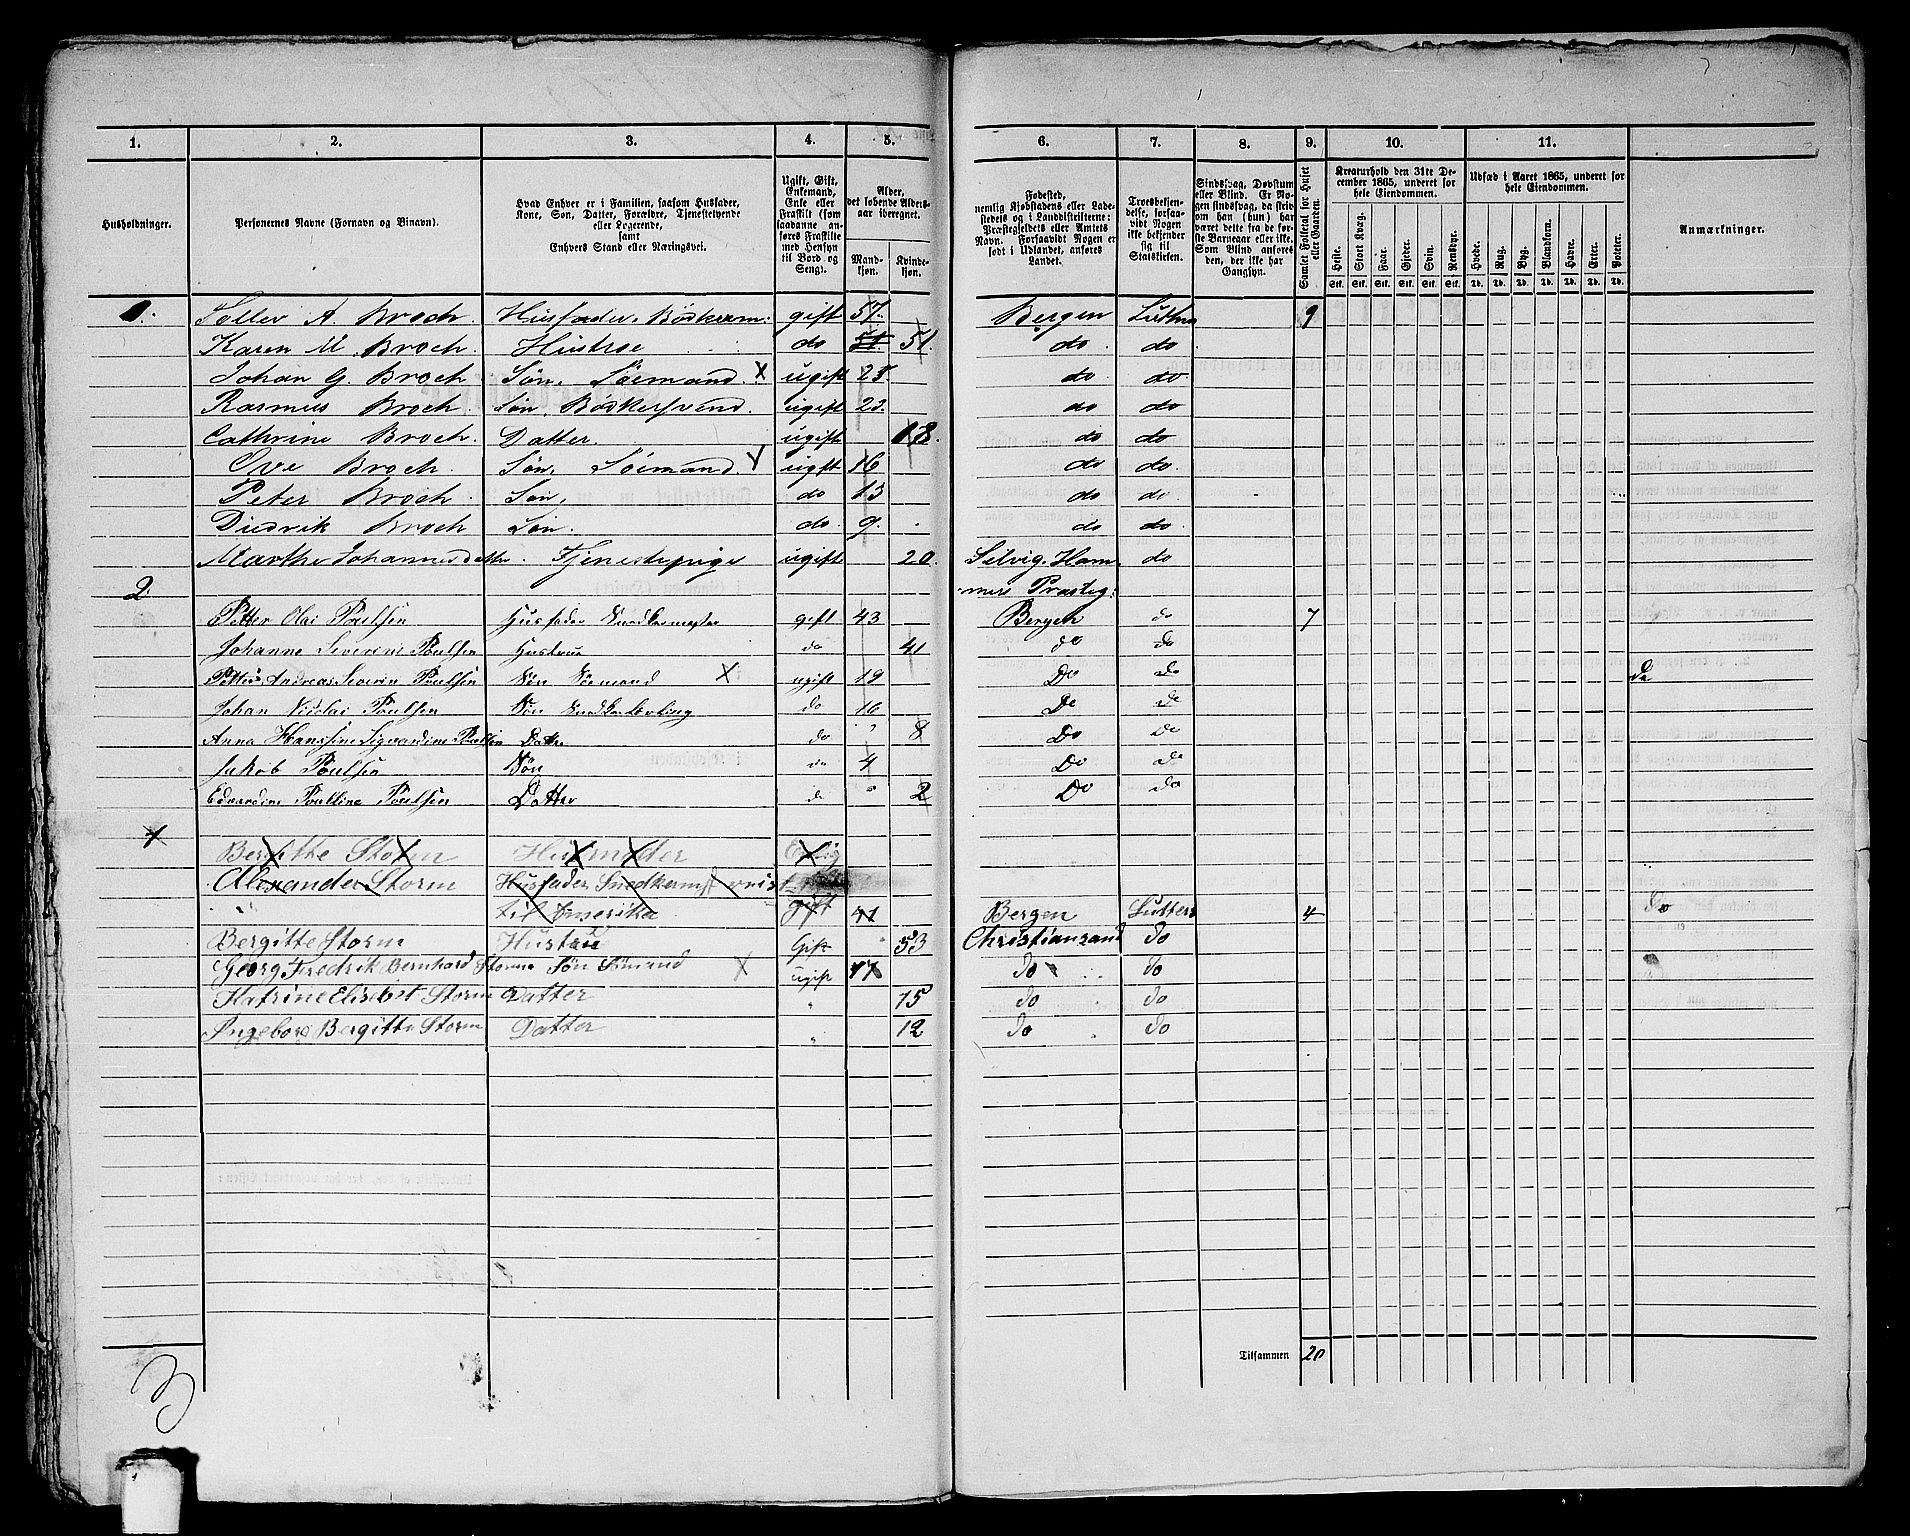 1. 2. 3. 4. 5. 6. 7. 8. 9. 10. 11.
Husholdninger.
Personernes Navne (Fornavn og Binavn).
Hvad Enhver er i Familien, saasom Husfader, Kone, Søn, Datter, Forældre, Tjenestetyende eller Logerende, samt Enhvers Stand eller Næringsvei.
Ugift, Gift, Enkemand, Enke eller Fraskilt (som saadanne anføres Fraskilte med Hensyn til Bord og Seng).
Alder, det løbende Aldersaar iberegnet.
Mandkjøn. Kvindekjøn.
Fødested, nemlig Kjøbstadens eller Ladestedets og i Landdistrikterne: Præstegjeldets eller Amtets Navn. Forsaavidt Nogen er født i Udlandet, anføres Landet.
Troesbekjendelse, forsaavidt Nogen ikke bekjender sig til Statskirken.
Sindssvag, Døvstum eller Blind. Er Nogen sindssvag, da skrives om han (hun) har været dette fra de første Barneaar eller ikke. Som Blind anføres den, der ikke har Gangsyn.
Samlet Folketal for Huset eller Gaarden.
Kreaturhold den 31te December 1865, underet for hele Eiendommen.
Heste. Stort Kvæg. Faar. Gjeder. Svin. Rensdyr.
Udsæd i Aaret 1865, underet for hele Eiendommen.
Hvede. Rug. Byg. Blandkorn. Havre. Erter. Poteter.
Anmærkninger.
Stk. Stk. Stk. Stk. Stk. Stk. Td. Td. Td. Td. Td. Td. Td.
1. Toller A. Broch. Husfader. Bödkerm: gift 57. Bergen Luthr 9
Karen M. Broch. Hustroe do 51. 51. do do
Johan G. Broch Sön. Söemand. X ugift 25. do do
Rasmus Broch. Sön Bödkersvend. ugift 23. do do
Cathrine Broch. Datter. ugift 18. do do
Ove Broch. Sön, Söemand. X ugft 16 do do
Peter Broch. Sön, do 13 do do
Diedrik Broch Sön. do 9. do do
Marthe Johannesdatter. Tjenestepige ugift 20. Selvig. Ham- do
2. mers Præsteg:
Petter Olai Poulsen Husfader Snedkermester gift 43 Bergen do 7
Johanne Severine Poulsen Hustrue do 41 do do
Petter Andreas Severin Poulsen Sön Sömand X ugift 19 Do do do
Johan Nicolai Poulsen Sön Snedkerlærling do 16 Do do
Anna Hansine Sigvardine Poulsen Datter do " 8 Do do
Jakob Poulsen Sön do 4 Do do
Edvardine Pouline Poulsen Datter do " 2 Do do
Bergitte Storm Husmoder
Alexander Storm Husfader Snedkermst reist
til Amerika gift 41 Bergen Lutters 4 do
Bergitte Storm Hustru Gift " 53 Christiansand do
Georg Fredrik Bernhard Storm Sön Sömand X ugift 17 do do
Katrine Elisebet Storm Datter " 15 do do
Ingeborg Bergitte Storm Datter " 12 do do
Tilsammen 20
3